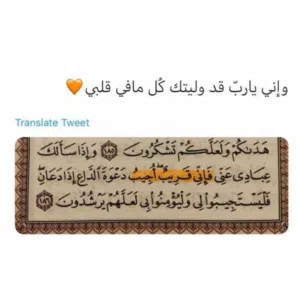 وإني ياربّ قد وليتك كُل مافي قلبي🧡
Translate Tweet
هَدَىٰكُمْ وَلَعَلَّكُمْ تَشْكُرُونَ ١٨٥ وَإِذَا سَأَلَكَ
عِبَادِى عَنِّى فَإِنِّى قَرِيبٌ أُجِيبُ دَعْوَةَ ٱلدَّاعِ إِذَا دَعَانِ
فَلْيَسْتَجِيبُوا۟ لِى وَلْيُؤْمِنُوا۟ بِى لَعَلَّهُمْ يَرْشُدُونَ ١٨٦